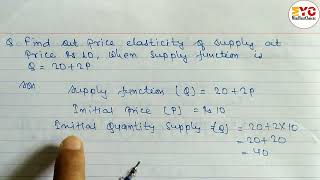 SYC
Q. Find out price elasticity of supply at
Price Rs 10, When supply function is
Q = 20+2P
Soln
Supply function [Q] = 20+2P
Initial Price [P] = Rs 10
Initial Quantity Supply [Q] = 20+2×10
= 20+20
= 40